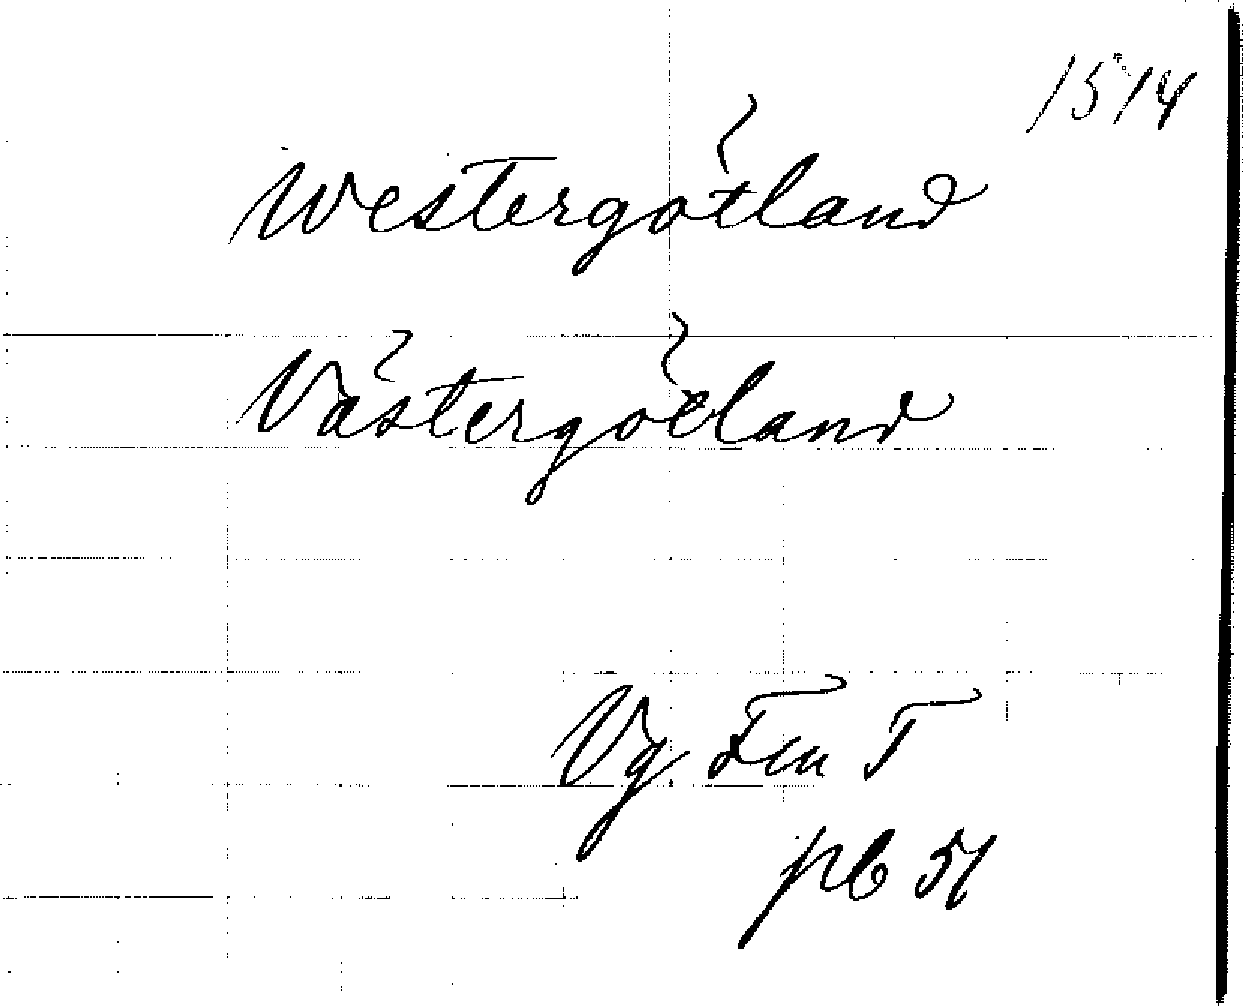 1514
Westergötland
Västergötland
Vg. Fen T
pb 51